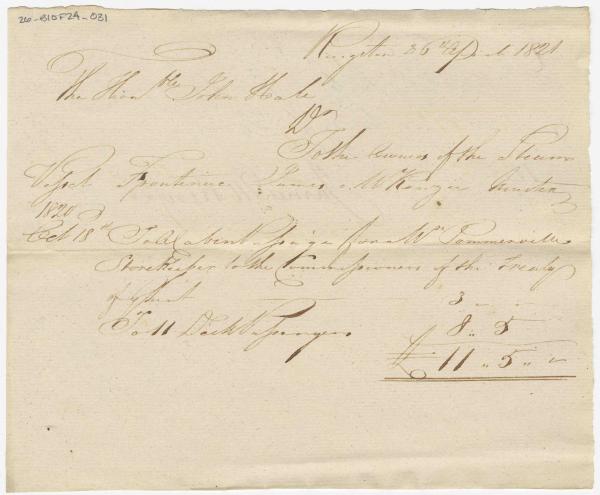 26-B10F24-031
Kingston 26th April 1821
The Honble John Hale
Dr
To the Owners of the Steam
Vessel Frontenac James McKenzie Master
1820
Oct 18th To a Cabin Passage for a Mr Sommerville
Storekeeper to the Commissioners of the Treaty
of Ghent 3 " "
To 11 Deck Passengers 8 " 5
£ 11 " 5 " "